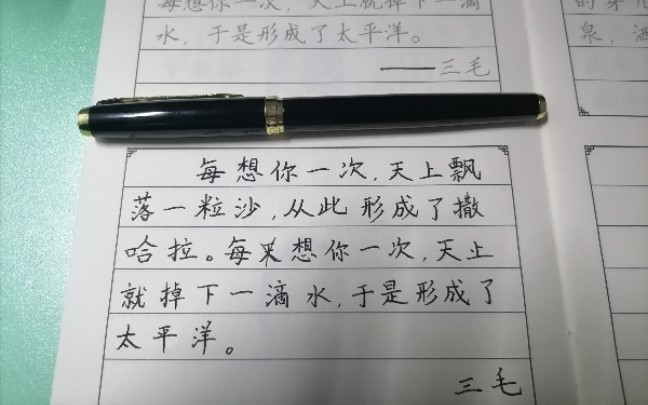 每想你一次，天上就掉下一滴
水，于是形成了太平洋。
——三毛
的
泉，
每想你一次，天上飘
落一粒沙，从此形成了撒
哈拉。每来想你一次，天上
就掉下一滴水，于是形成了
太平洋。
三毛